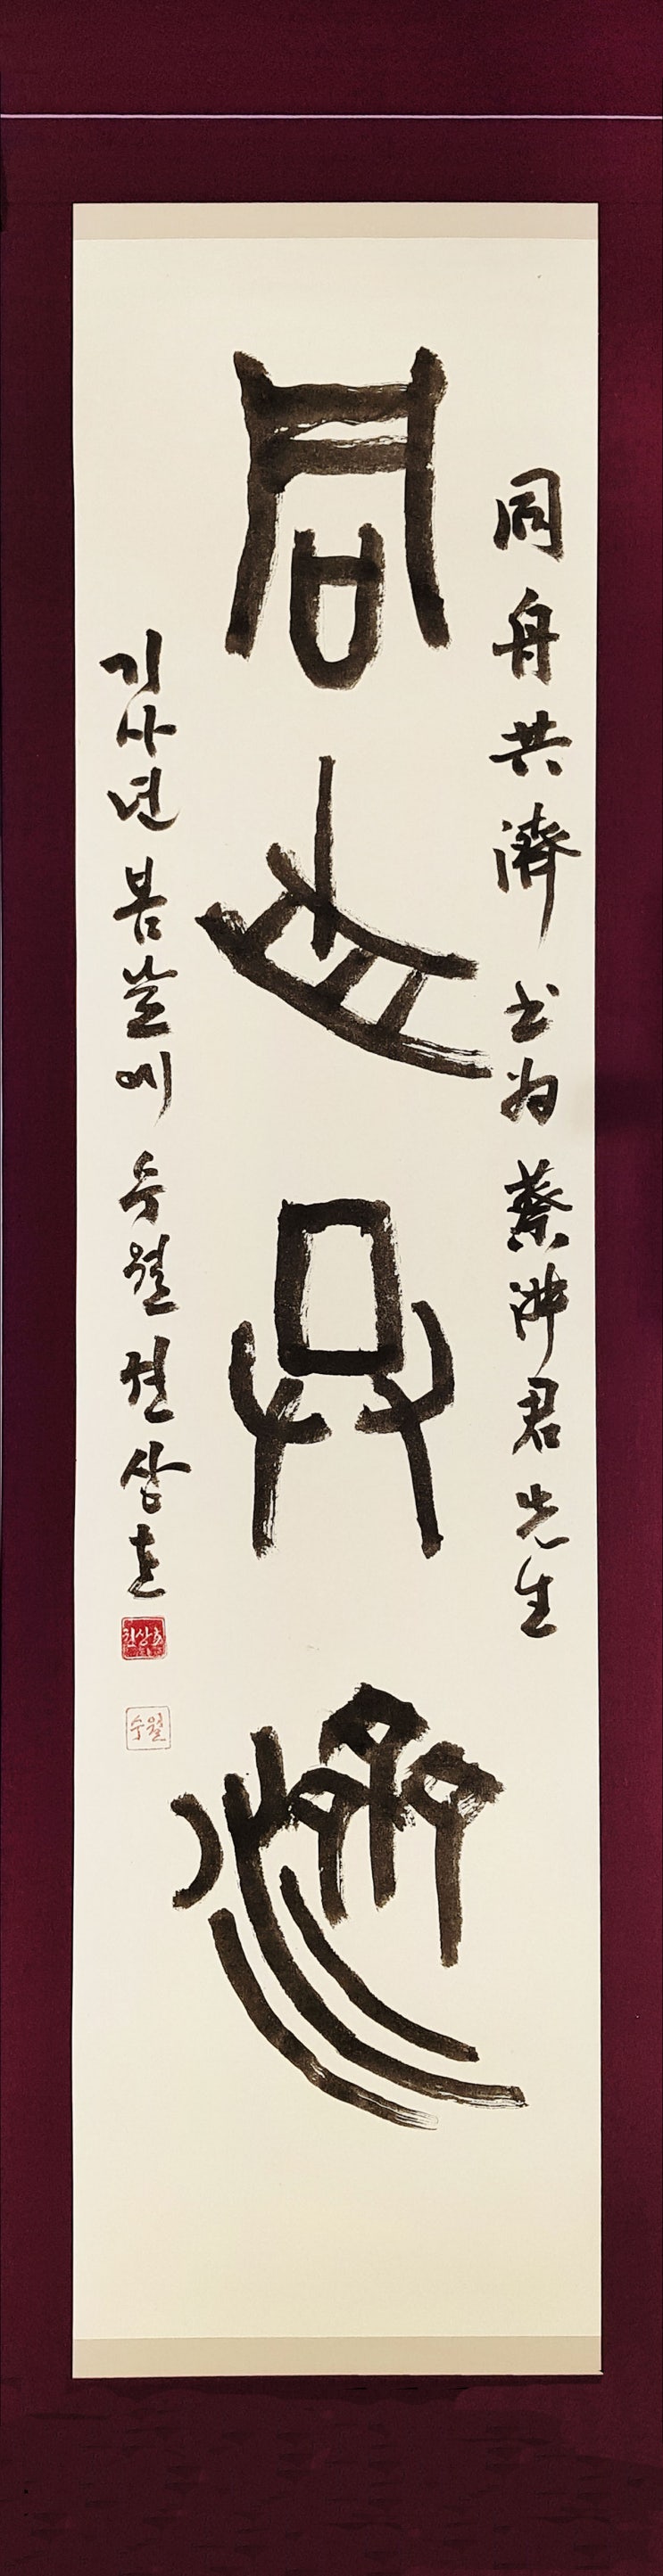 同舟共濟 书为 蔡 君先生
同舟共濟
기사년 봄날에 수월 천상호
천상호
수월